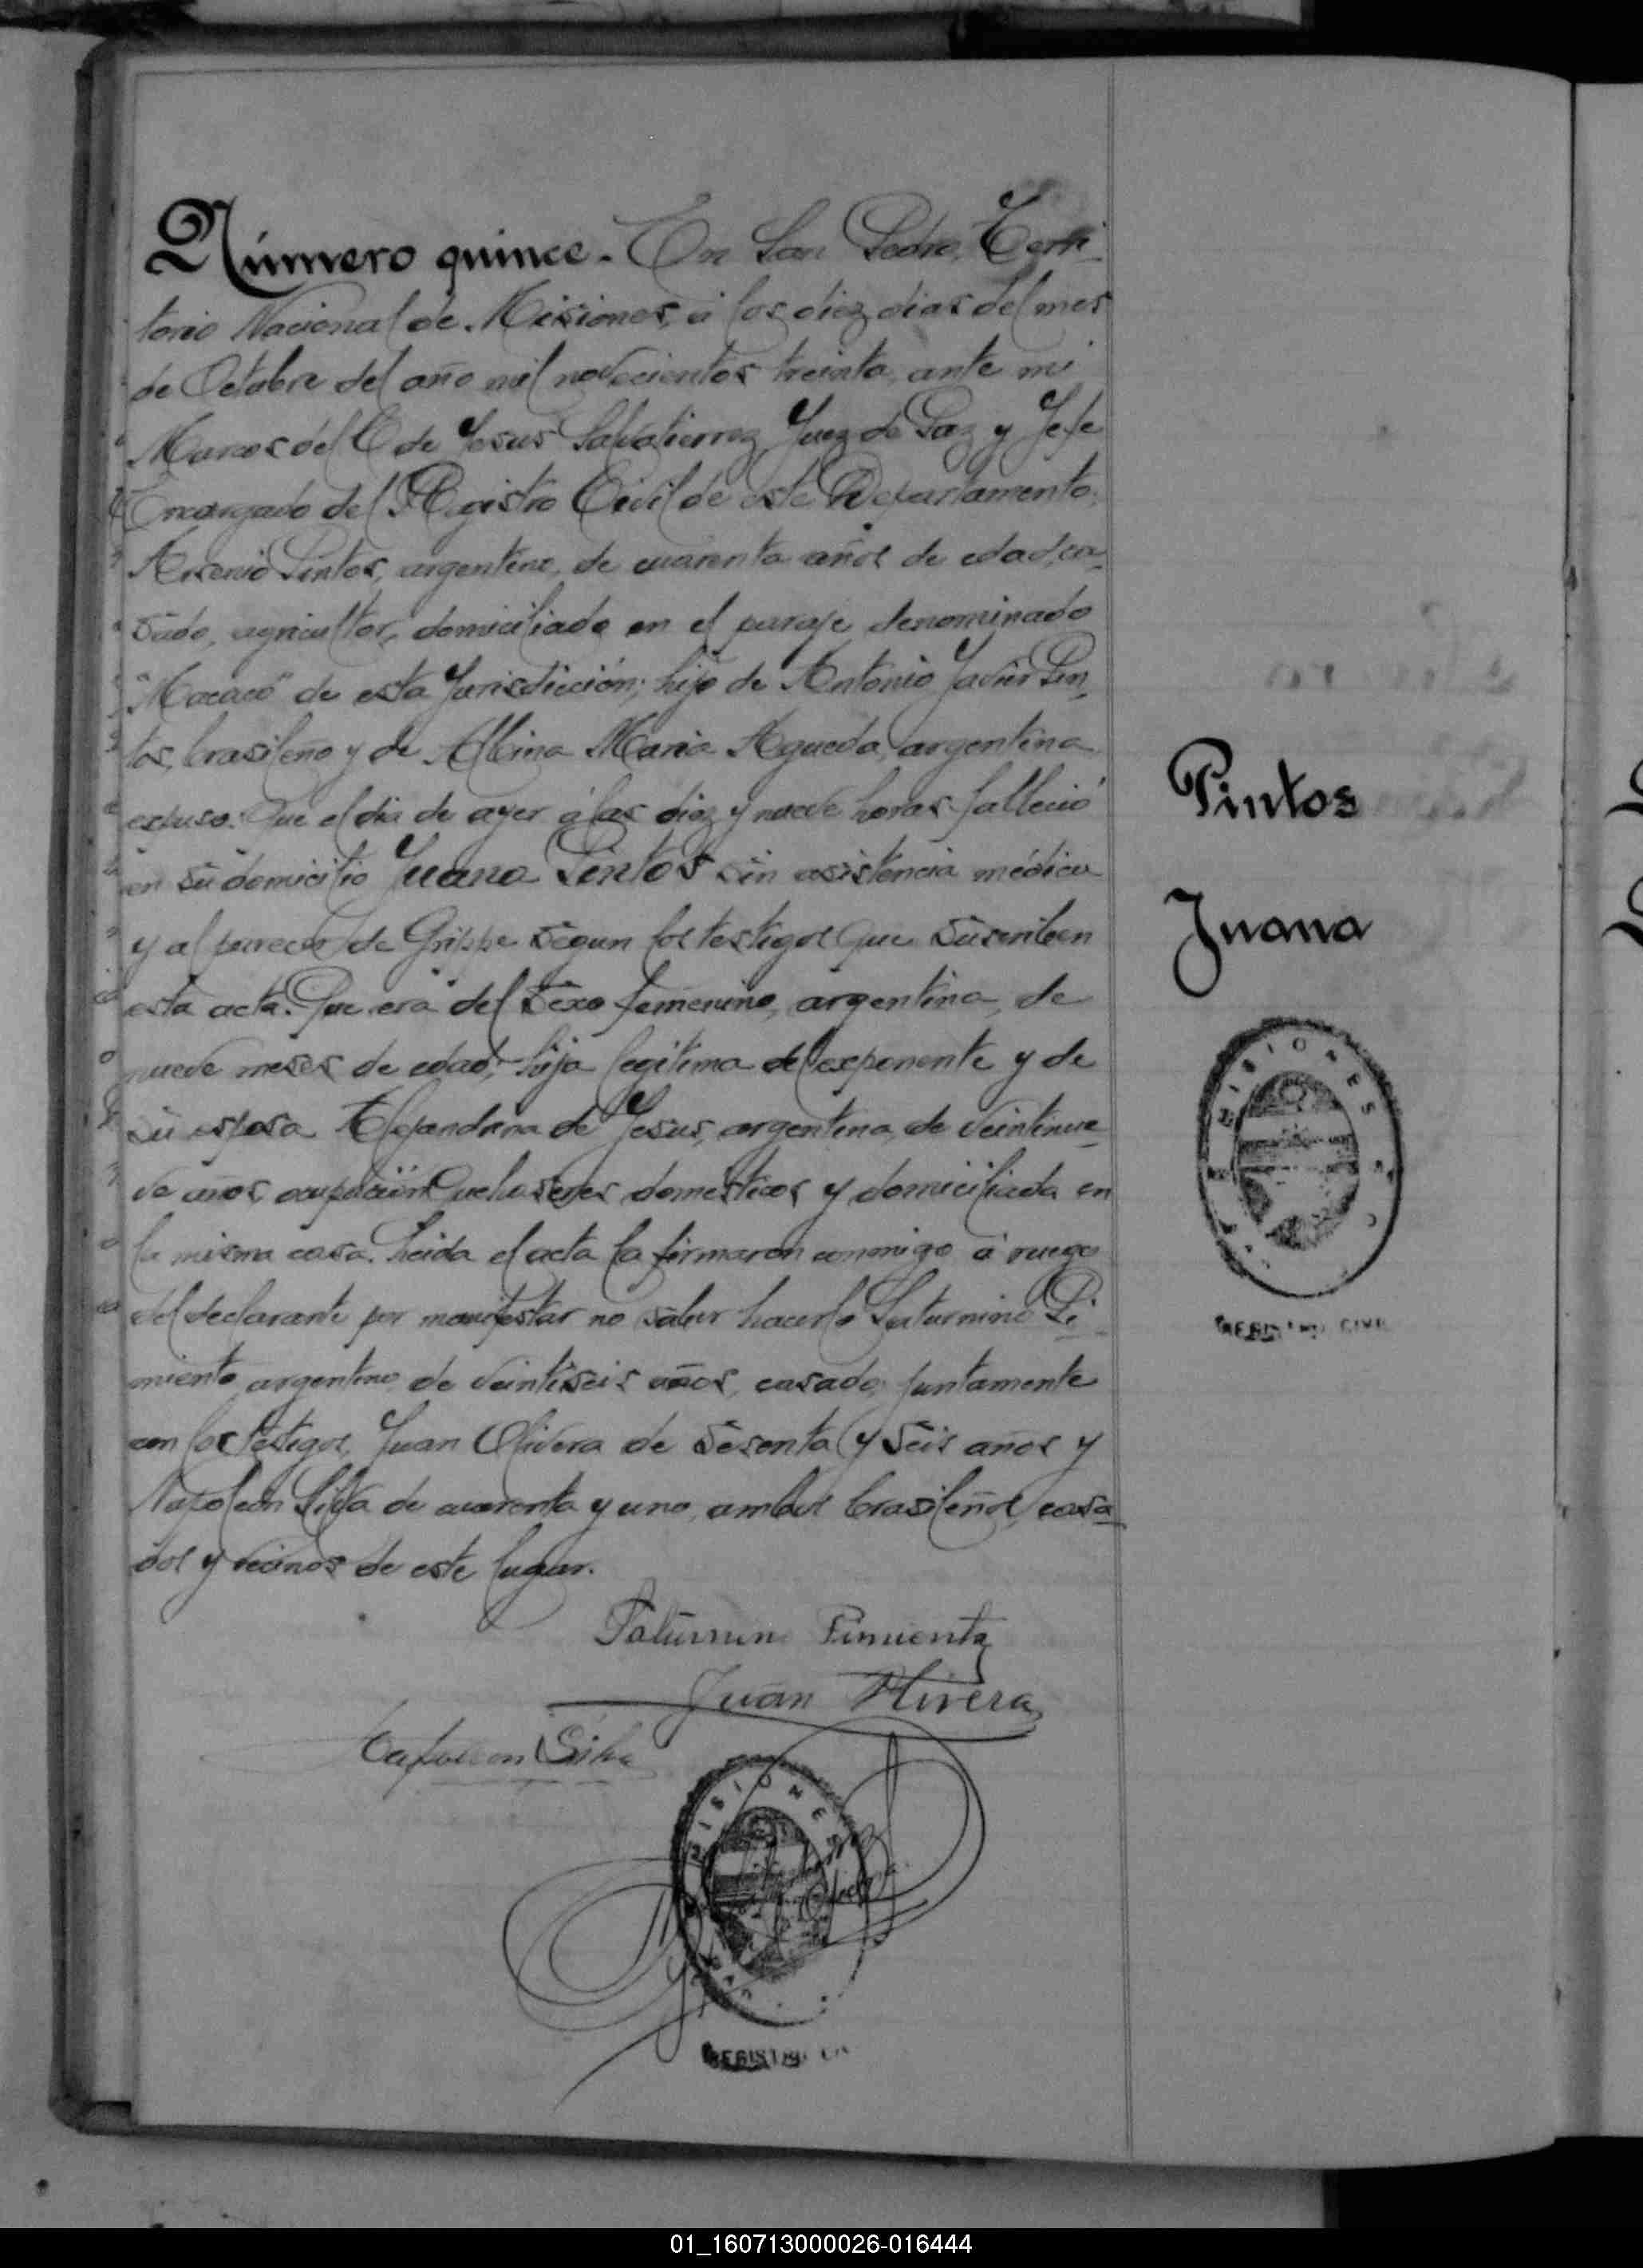 Número quince. En San Pedro, Terri-
torio Nacional de Misiones, á los diez dias del mes
de Octubre del año mil novecientos treinta, ante mi
Marcos del C de Jesus Salvatierra, Juez de Paz y Jefe
Encargado del Registro Civil de este Departamento,
Arsenio Pintos, argentino, de cuarenta años de edad, ca-
sado, agricultor, domiciliado en el paraje denominado
"Macaco" de esta Jurisdicción; hijo de Antonio Javier Pin-
tos, brasileño y de Albina Maria Agueda, argentina
espuso: Que el dia de ayer á las diez y nueve horas falleció
en su domicilio Juana Pintos sin asistencia médica
y al parecer de Grippe segun los testigos que suscriben
esta acta. Que era del sexo femenino, argentina, de
nueve meses de edad; hija legitima del exponente y de
su esposa Alejandrina de Jesus, argentina, de veintinue-
ve años, ocupación quehaseres domesticos y domiciliada en
la misma casa. Leida el acta la firmaron conmigo á ruego
del declarante por manifestar no saber hacerlo Saturnino Pi-
miento, argentino de veintiseis años, casado, juntamente
con los testigos, Juan Olivera de sesenta y seis años y
Napoleon Silva de cuarenta y uno, ambos brasileños, casa-
dos y vecinos de este lugar.
Pintos
Juana
MISIONES
REGISTRO CIVIL
Saturnino Pimienta
Juan Olivera
Napoleon Silva
MISIONES
REGISTRO
01_160713000026-016444